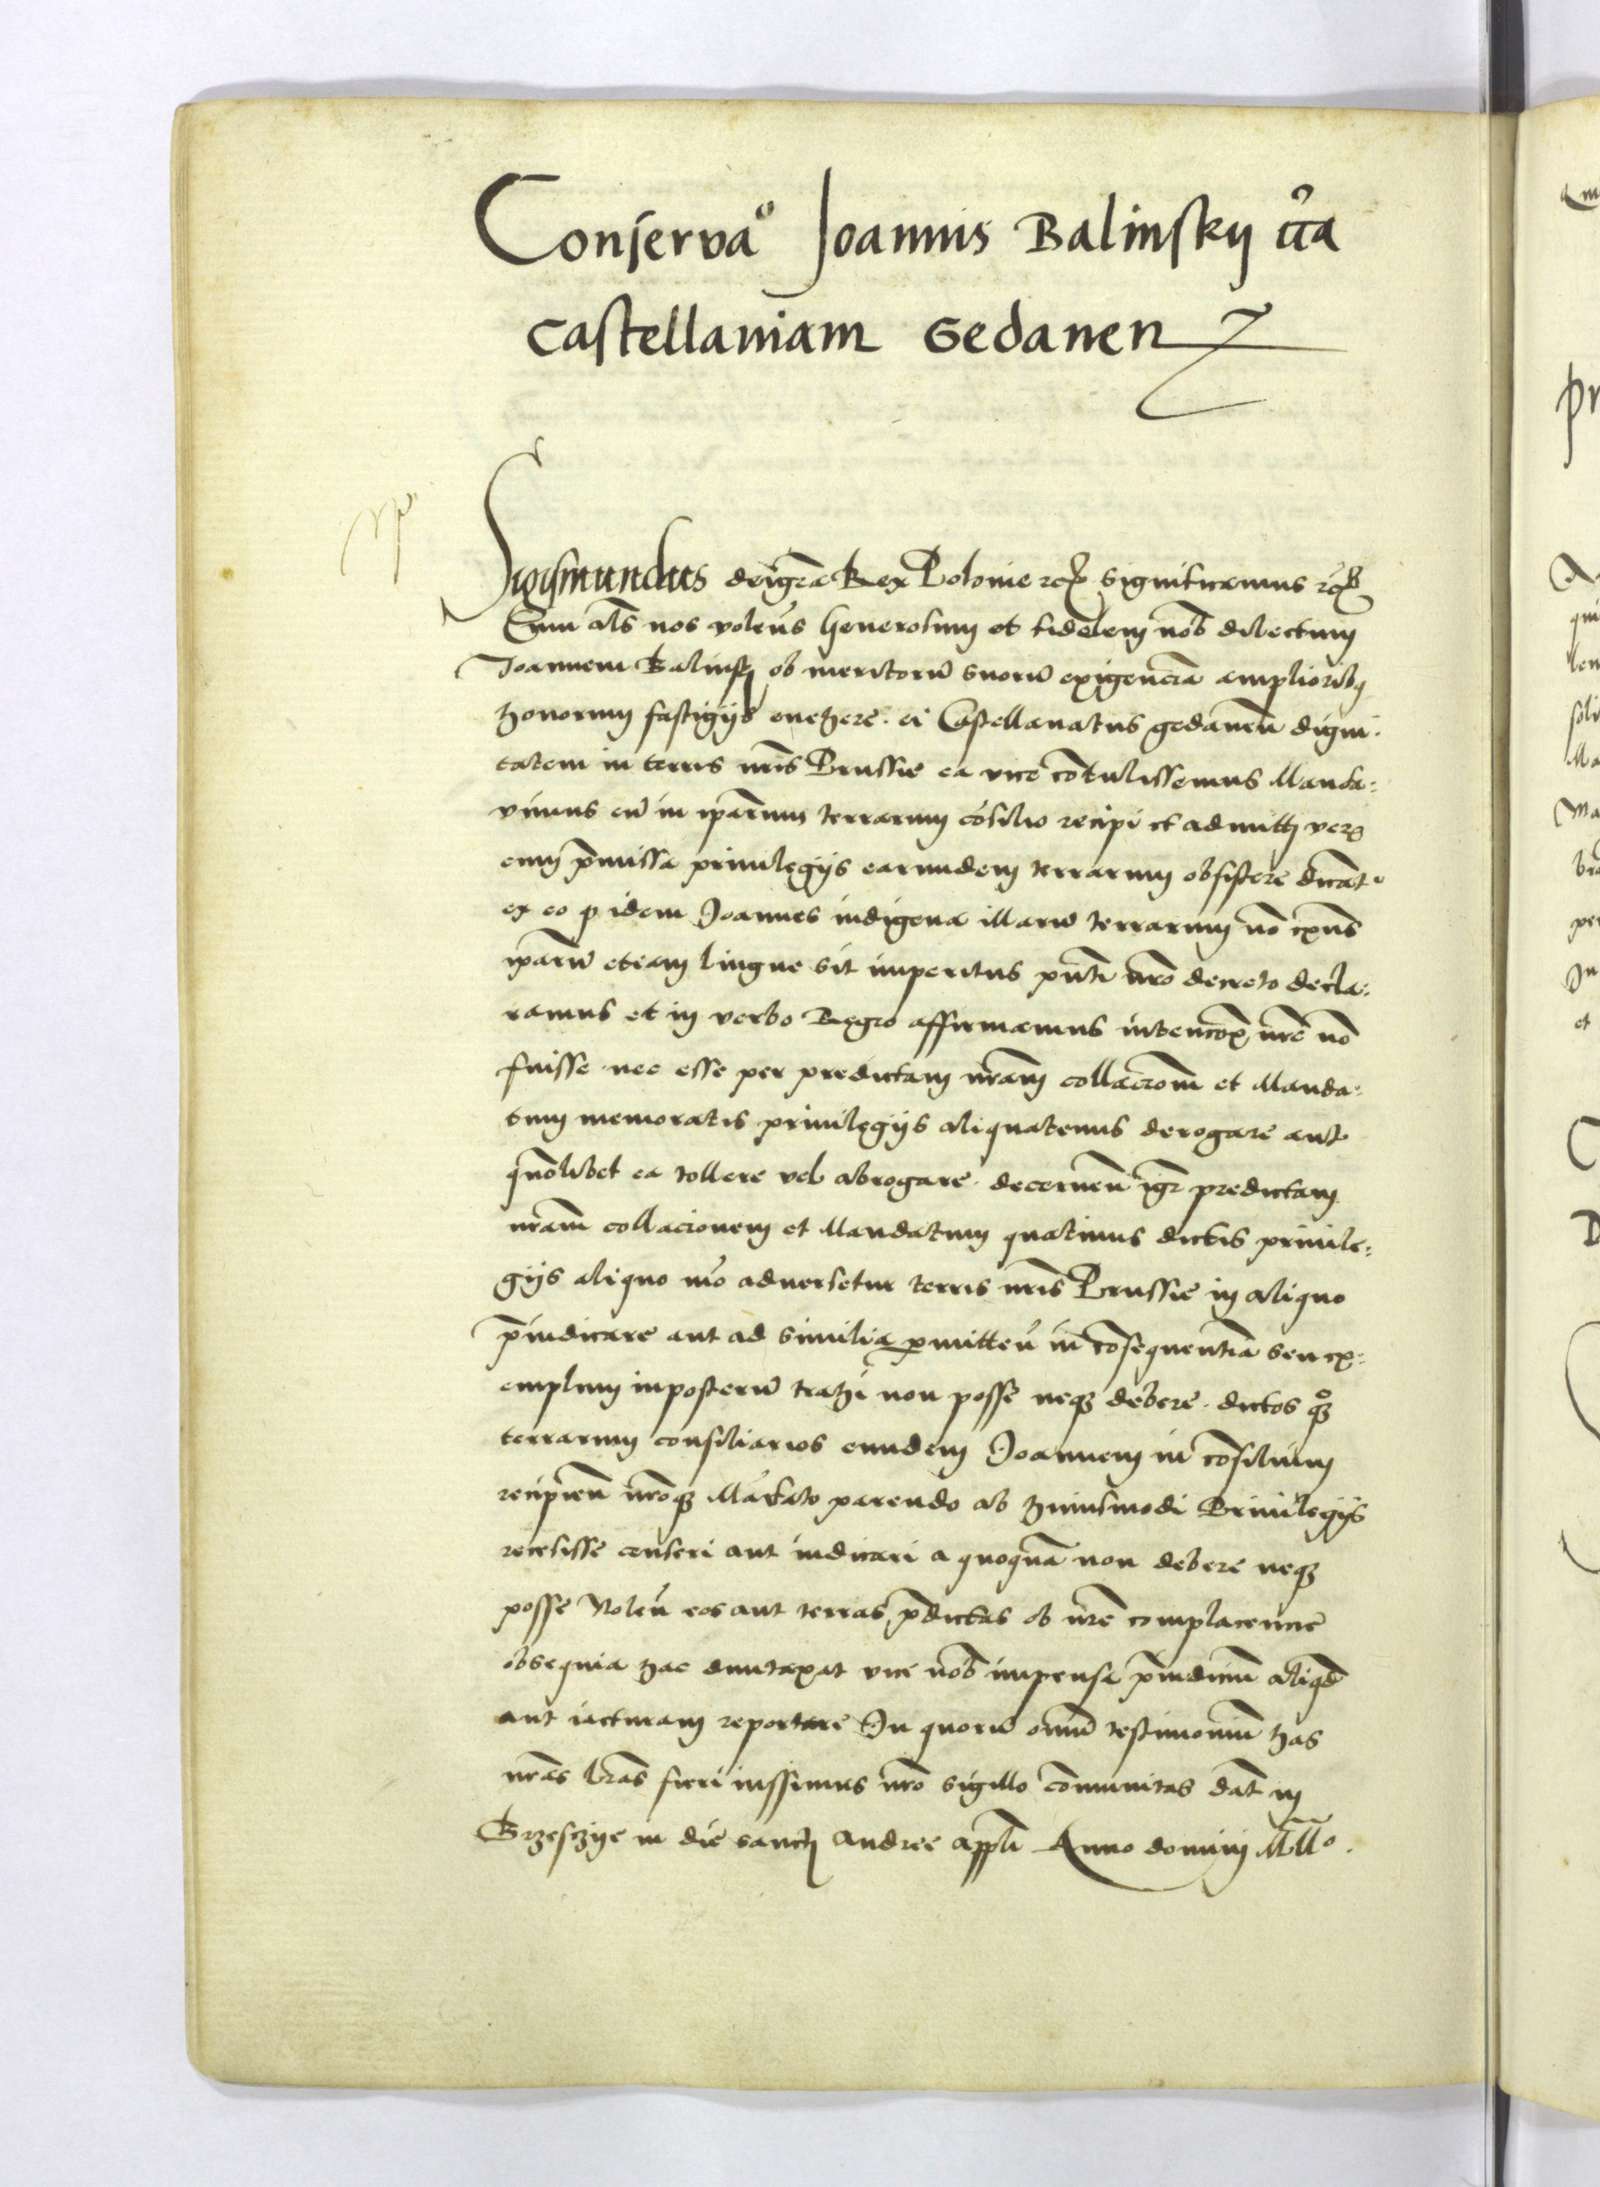 Conservaº Joannis Balinsky cīa
castellaniam Gedanen
Sigismundus dei grā Rex Polonie rcꝫ significamus rcꝫ
Cum als nos volen̄s Generosum et fidelem nob dilectum
Joannem Balinskj ob meritorū suorū exigenciā amplioribꝫ
honorum fastigijs evehere. ei Castellanatus gedanen̄ digni-
tatem in terris nr̄is Prussie ea vice cōtulissemus Manda-
vimus eū in ip̄arum terrarum cōsilio recipi et admittj verū
cum p̄missa privilegijs earundem terrarum obsistere dicāt
ex eo ꝙ idem Joannes indigena illarū terrarum nō exn̄s
ip̄arū eteam lingue sit imperitus pn̄ti nr̄o decreto decla-
ramus et in verbo Regio affirmamus intencōis nr̄e nō
fuisse nec esse per predictam nr̄am collacionē et Manda-
tum memoratis privilegijs aliquatenus derogare aut
quōlibet ea tollere vel abrogare. decernen̄ igr̄ predictam
nr̄am collacionem et Mandatum quatinus dictis privile-
gijs aliquo mō adversetur terris nr̄is Prussie in aliquo
p̄iudicare aut ad similia permitten̄ in cōsequentiā seu ex-
emplum inposterū trahi non posse neqꝫ debere. dictos qꝫ
terrarum consiliarios eundem Joannem in cōsilium
recipien̄ nr̄oqꝫ Mādato parendo ab huiusmodi Privilegijs
recesisse censeri aut iudicari a quoquā non debere neqꝫ
posse Nolen̄ eos aut terras p̄dictas ob nr̄e complacencie
obsequia hac duntaxat vice nob impensa p̄iudiciū aliqd̄
aut iacturam reportare In quorū omniū testimoniū has
nr̄as lr̄as fieri iussimus nr̄o sigillo cōmunitas dat̄ in
Brzesczye in die sanctj Andree appl̄i Anno domini